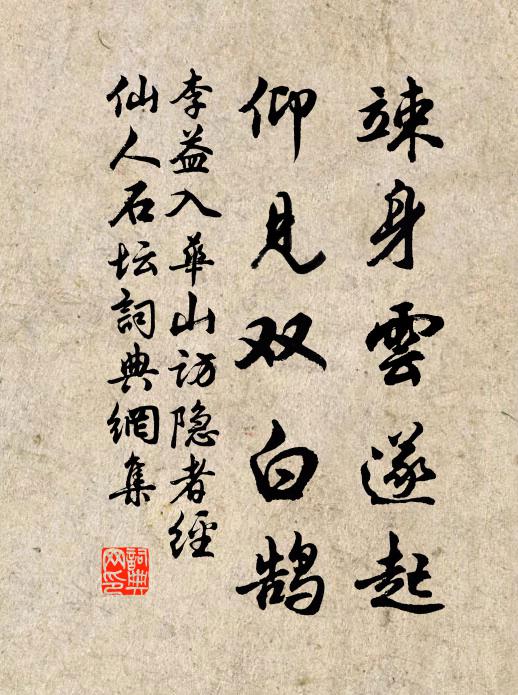 竦身雲遂起
仰見双白鹄
李益入華山访隐者經
仙人石坛詞典網集
詞典网印